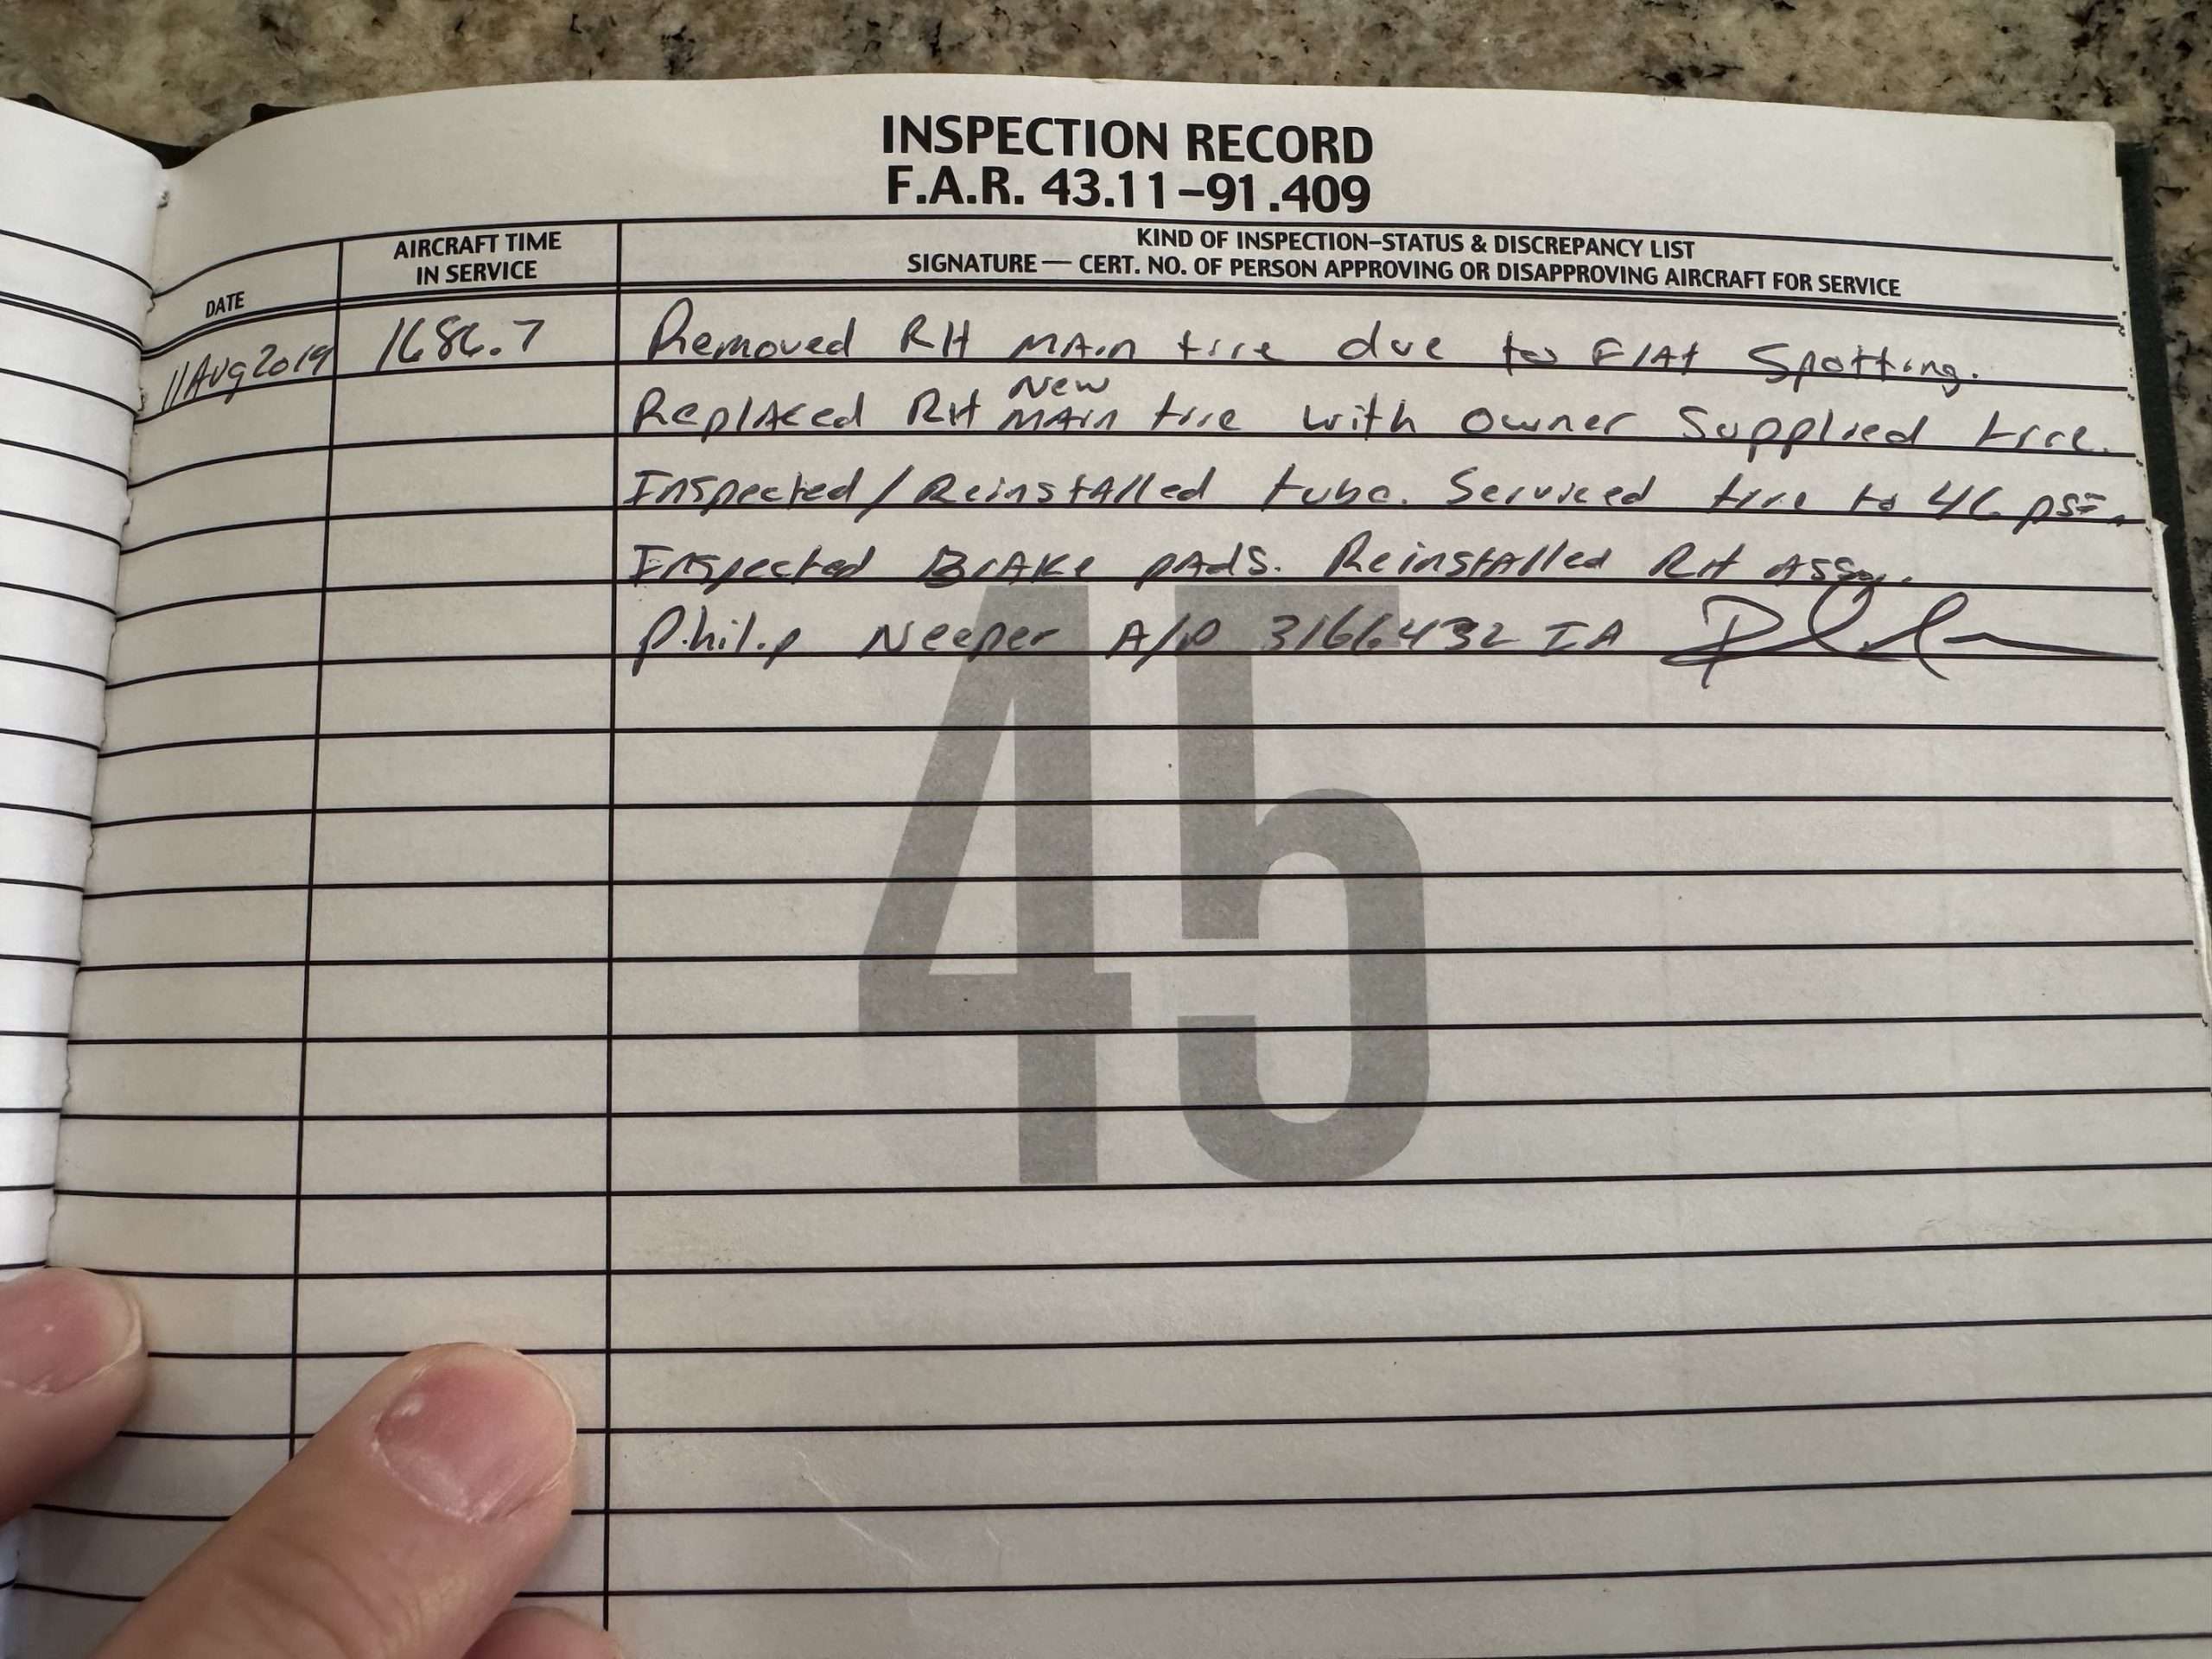 INSPECTION RECORD
F.A.R. 43.11-91.409
DATE
AIRCRAFT TIME
IN SERVICE
KIND OF INSPECTION-STATUS & DISCREPANCY LIST
SIGNATURE — CERT. NO. OF PERSON APPROVING OR DISAPPROVING AIRCRAFT FOR SERVICE
11Aug2019 1686.7 Removed RH MAin tire due to FlAt Spotting.
New
ReplAced RH MAin tire with owner Supplied tire.
Inspected/ReinstAlled tube. Serviced tire to 46 psi.
Inspected BrAKe pAds. ReinstAlled RH Assy.
Philip Neeper A/P 3166432 IA
45